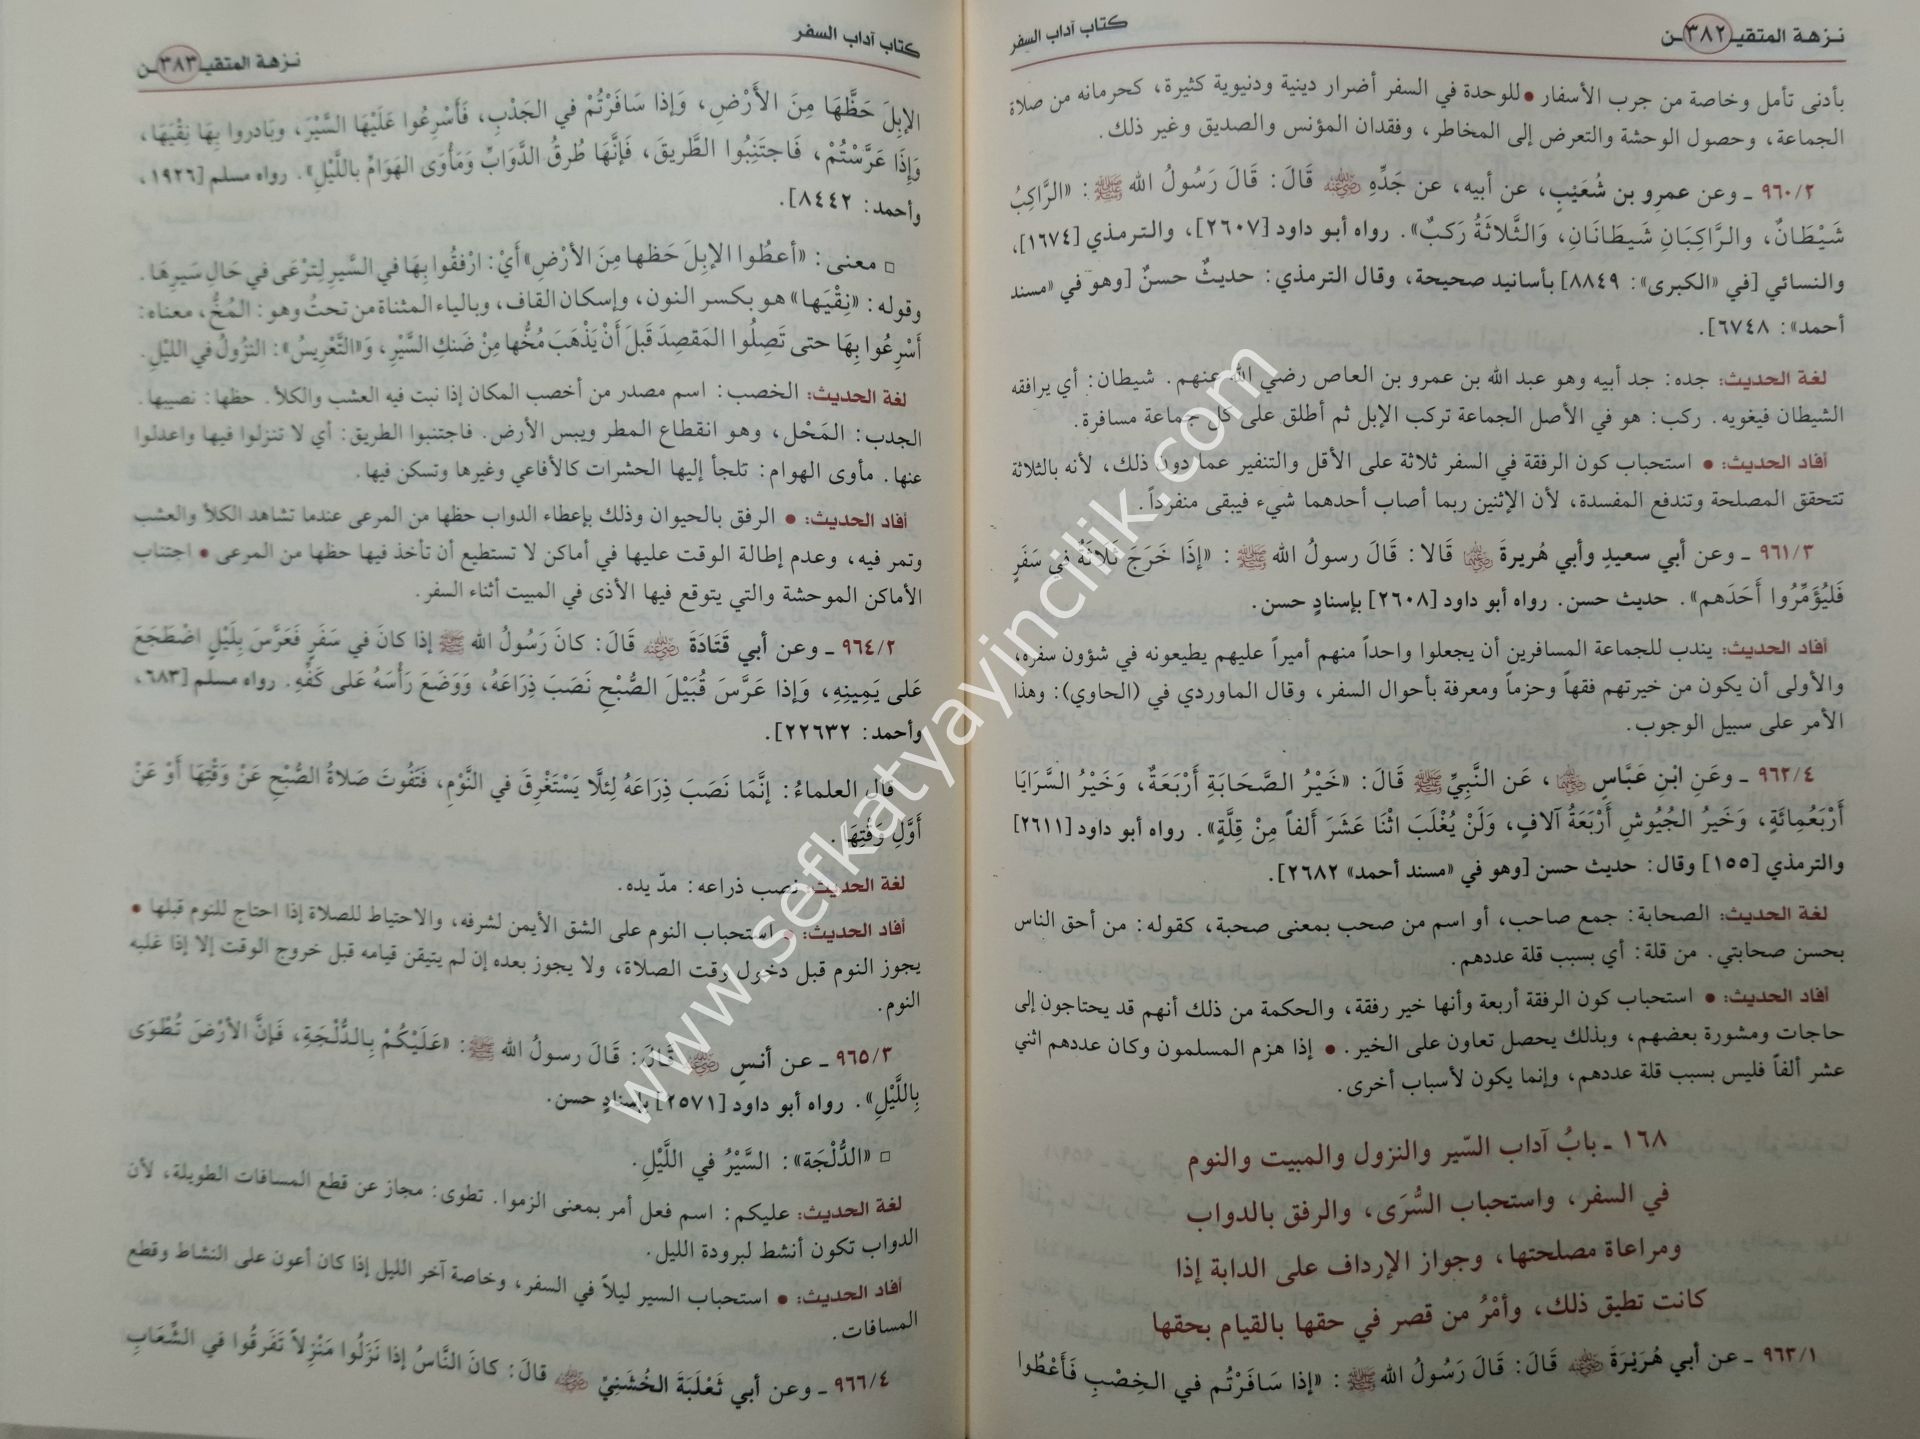 نـزهـة المتقيـ ٣٨٢ ـن
كتاب آداب السفر
بأدنى تأمل وخاصة من جرب الأسفار • للوحدة في السفر أضرار دينية ودنيوية كثيرة، كحرمانه من صلاة
الجماعة، وحصول الوحشة والتعرض إلى المخاطر، وفقدان المؤنس والصديق وغير ذلك.
٩٦٠/٢ ـ وعن عمرِو بن شُعَيْبٍ، عن أبيه، عن جَدِّهِ رضي الله عنه قَالَ: قَالَ رَسُولُ الله ﷺ: «الرَّاكِبُ
شَيْطَانٌ، والرَّاكِبَانِ شَيطَانَانِ، وَالثَّلاثَةُ رَكبٌ». رواه أبو داود [٢٦٠٧]، والترمذي [١٦٧٤]،
والنسائي [في «الكبرى»: ٨٨٤٩] بأسانيد صحيحة، وقال الترمذي: حديثٌ حسنٌ [وهو في «مسند
أحمد»: ٦٧٤٨].
لغة الحديث: جده: جد أبيه وهو عبد الله بن عمرو بن العاص رضي الله عنهم. شيطان: أي يرافقه
الشيطان فيغويه. ركب: هو في الأصل الجماعة تركب الإبل ثم أطلق على كل جماعة مسافرة.
أفاد الحديث: • استحباب كون الرفقة في السفر ثلاثة على الأقل والتنفير عما دون ذلك، لأنه بالثلاثة
تتحقق المصلحة وتندفع المفسدة، لأن الإثنين ربما أصاب أحدهما شيء فيبقى منفرداً.
٩٦١/٣ ـ وعن أبي سعيدٍ وأبي هُريرةَ رضي الله عنهما قَالا: قَالَ رسولُ الله ﷺ: «إذَا خَرَجَ ثَلاثَةٌ في سَفَرٍ
فَليُؤَمِّرُوا أَحَدَهم». حديث حسن. رواه أبو داود [٢٦٠٨] بإسنادٍ حسن.
أفاد الحديث: يندب للجماعة المسافرين أن يجعلوا واحداً منهم أميراً عليهم يطيعونه في شؤون سفره،
والأولى أن يكون من خيرتهم فقهاً وحزماً ومعرفة بأحوال السفر، وقال الماوردي في (الحاوي): وهذا
الأمر على سبيل الوجوب.
٩٦٢/٤ ـ وعَنِ ابْنِ عَبَّاسٍ رضي الله عنهما، عَن النَّبِيِّ ﷺ قَالَ: «خَيْرُ الصَّحَابَةِ أَرْبَعَةٌ، وَخَيْرُ السَّرَايَا
أَرْبَعُمِائَةٍ، وَخَيرُ الجُيُوشِ أَرْبَعَةُ آلافٍ، وَلَنْ يُغْلَبَ اثْنَا عَشَرَ أَلفاً مِنْ قِلَّةٍ». رواه أبو داود [٢٦١١]
والترمذي [١٥٥] وقال: حديث حسن [وهو في «مسند أحمد» ٢٦٨٢].
لغة الحديث: الصحابة: جمع صاحب، أو اسم من صحب بمعنى صحبة، كقوله: من أحق الناس
بحسن صحابتي. من قلة: أي بسبب قلة عددهم.
أفاد الحديث: • استحباب كون الرفقة أربعة وأنها خير رفقة، والحكمة من ذلك أنهم قد يحتاجون إلى
حاجات ومشورة بعضهم، وبذلك يحصل تعاون على الخير. • إذا هزم المسلمون وكان عددهم اثني
عشر ألفاً فليس بسبب قلة عددهم، وإنما يكون لأسباب أخرى.
١٦٨ ـ بابُ آداب السّير والنزول والمبيت والنوم
في السفر، واستحباب السُّرَى، والرفق بالدواب
ومراعاة مصلحتها، وجواز الإرداف على الدابة إذا
كانت تطيق ذلك، وأمْرُ من قصر في حقها بالقيام بحقها
٩٦٣/١ ـ عن أبي هُرَيْرَةَ رضي الله عنه قَالَ: قَالَ رَسُولُ الله ﷺ: «إذا سَافَرْتُم في الخِصْبِ فَأَعْطُوا
كتاب آداب السفر
نـزهـة المتقيـ ٣٨٣ ـن
الإبِلَ حَظَّهَا مِنَ الأَرْضِ، وَإذا سَافَرْتُمْ في الجَدْبِ، فَأَسْرِعُوا عَلَيْهَا السَّيْرَ، وبَادروا بِهَا نِقْيَهَا،
وَإِذَا عَرَّسْتُمْ، فَاجتَنِبُوا الطَّريقَ، فَإنَّهَا طُرقُ الدَّوَابِّ وَمَأْوَى الهَوَامِّ بِاللَّيْلِ». رواه مسلم [١٩٢٦،
وأحمد: ٨٤٤٢].
□ معنى: «أعطُوا الإبِلَ حَظها مِنَ الأرْضِ» أيْ: ارْفقُوا بِهَا في السَّيرِ لِتَرْعَى في حَالِ سَيرِهَا.
وقوله: «نِقْيَها» هو بكسر النون، وإسكان القاف، وبالياء المثناة من تحتُ وهو: المُخُّ، معناه:
أَسْرِعُوا بِهَا حتى تَصِلُوا المَقصِدَ قَبلَ أَنْ يَذْهَبَ مُخُّها مِنْ ضَنكِ السَّيْرِ، وَ«التَّعْرِيسُ»: النزُولُ في الليْلِ.
لغة الحديث: الخصب: اسم مصدر من أخصب المكان إذا نبت فيه العشب والكلأ. حظها: نصيبها.
الجدب: المَحْل، وهو انقطاع المطر ويبس الأرض. فاجتنبوا الطريق: أي لا تنزلوا فيها واعدلوا
عنها. مأوى الهوام: تلجأ إليها الحشرات كالأفاعي وغيرها وتسكن فيها.
أفاد الحديث: • الرفق بالحيوان وذلك بإعطاء الدواب حظها من المرعى عندما تشاهد الكلأ والعشب
وتمر فيه، وعدم إطالة الوقت عليها في أماكن لا تستطيع أن تأخذ فيها حظها من المرعى • اجتناب
الأماكن الموحشة والتي يتوقع فيها الأذى في المبيت أثناء السفر.
٩٦٤/٢ ـ وعن أبي قَتَادَةَ رضي الله عنه قَالَ: كانَ رَسُولُ الله ﷺ إذا كانَ في سَفَرٍ فَعَرَّسَ بِلَيْلٍ اضْطَجَعَ
عَلى يَمِينِهِ، وَإذا عَرَّسَ قُبَيْلَ الصُّبْحِ نَصَبَ ذِرَاعَهُ، وَوَضَعَ رَأْسَهُ عَلى كَفِّهِ. رواه مسلم [٦٨٣،
وأحمد: ٢٢٦٣٢].
قال العلماءُ: إنَّمَا نَصَبَ ذِرَاعَهُ لِئلَّا يَسْتَغْرِقَ في النَّوْمِ، فَتَفُوتَ صَلاةُ الصُّبْحِ عَنْ وَقْتِهَا أَوْ عَنْ
أَوَّلِ وَقْتِهَا.
لغة الحديث: نصب ذراعه: مدّ يده.
أفاد الحديث: • استحباب النوم على الشق الأيمن لشرفه، والاحتياط للصلاة إذا احتاج للنوم قبلها •
يجوز النوم قبل دخول وقت الصلاة، ولا يجوز بعده إن لم يتيقن قيامه قبل خروج الوقت إلا إذا غلبه
النوم.
٩٦٥/٣ ـ عن أنسٍ رضي الله عنه قَالَ: قَالَ رسولُ الله ﷺ: «عَلَيْكُمْ بِالدُّلْجَةِ، فَإنَّ الأرْضَ تُطْوَى
بِاللَّيْلِ». رواه أبو داود [٢٥٧١] بإسنادٍ حسن.
□ «الدُّلْجَة»: السَّيْرُ في اللَّيْلِ.
لغة الحديث: عليكم: اسم فعل أمر بمعنى الزموا. تطوى: مجاز عن قطع المسافات الطويلة، لأن
الدواب تكون أنشط لبرودة الليل.
أفاد الحديث: • استحباب السير ليلاً في السفر، وخاصة آخر الليل إذا كان أعون على النشاط وقطع
المسافات.
٩٦٦/٤ ـ وعن أبي ثَعْلَبَةَ الخُشَنِيِّ رضي الله عنه قالَ: كانَ النَّاسُ إذا نَزَلُوا مَنْزِلاً تَفَرقُوا في الشِّعَابِ
www.sefkatyayincilik.com